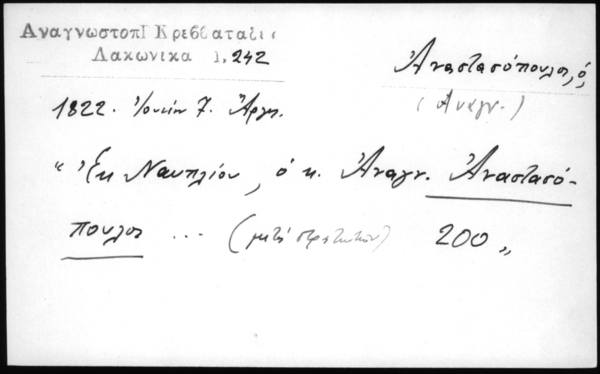 Αναγνωστοπ Κρεββαταδι
Λακωνικα 1, 242
Ἀναστασόπουλος, ὁ,
(Ἀναγν.)
1822. Ἰουνίου 7. Ἄργος.
"Ἐκ Ναυπλίου, ὁ κ. Ἀναγν. Ἀναστασό-
πουλος ... (μετά στρατιωτῶν) 200 "